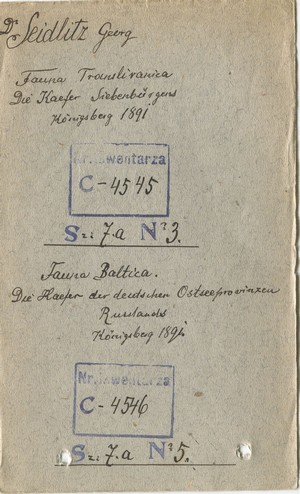 Dr Seidlitz Georg
Fauna Transsivanica
Die Kaefer Siebenbürgens
Königsberg 1891
Nr. inwentarza
C-4545
Sz: 7.a Nº 3.
Fauna Baltica.
Die Kaefer der deutschen Ostseeprovinzen
Russlands
Königsberg 1891.
Nr. inwentarza
C-4546
Sz: 7.a Nº 5.